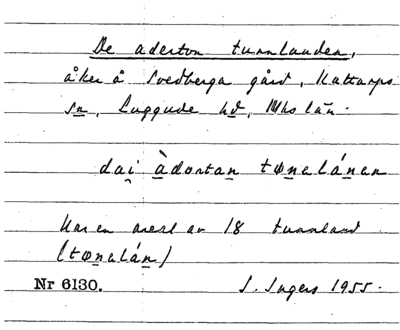 De aderton tunnlanden,
åker å Svedberga gård, Kattarps
sn, Luggude hd, Mhs län.
dai̯ àdortan tønelánen
Har en areal av 18 tunnland
(tønelán)
Nr 6130. I. Ingers 1955.